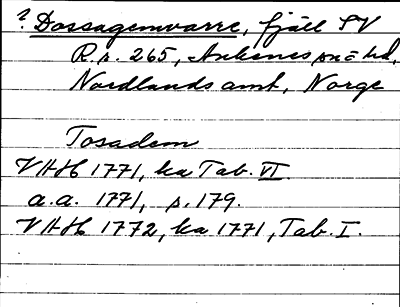 ? Dossagemvarre, fjäll SV
R.s. 265, Ankenes sn = hd,
Nordlands amt, Norge
Tosadem
VHH 1771, ka Tab. VI.
a.a. 1771, s. 179.
VHH 1772, ka 1771, Tab. I.